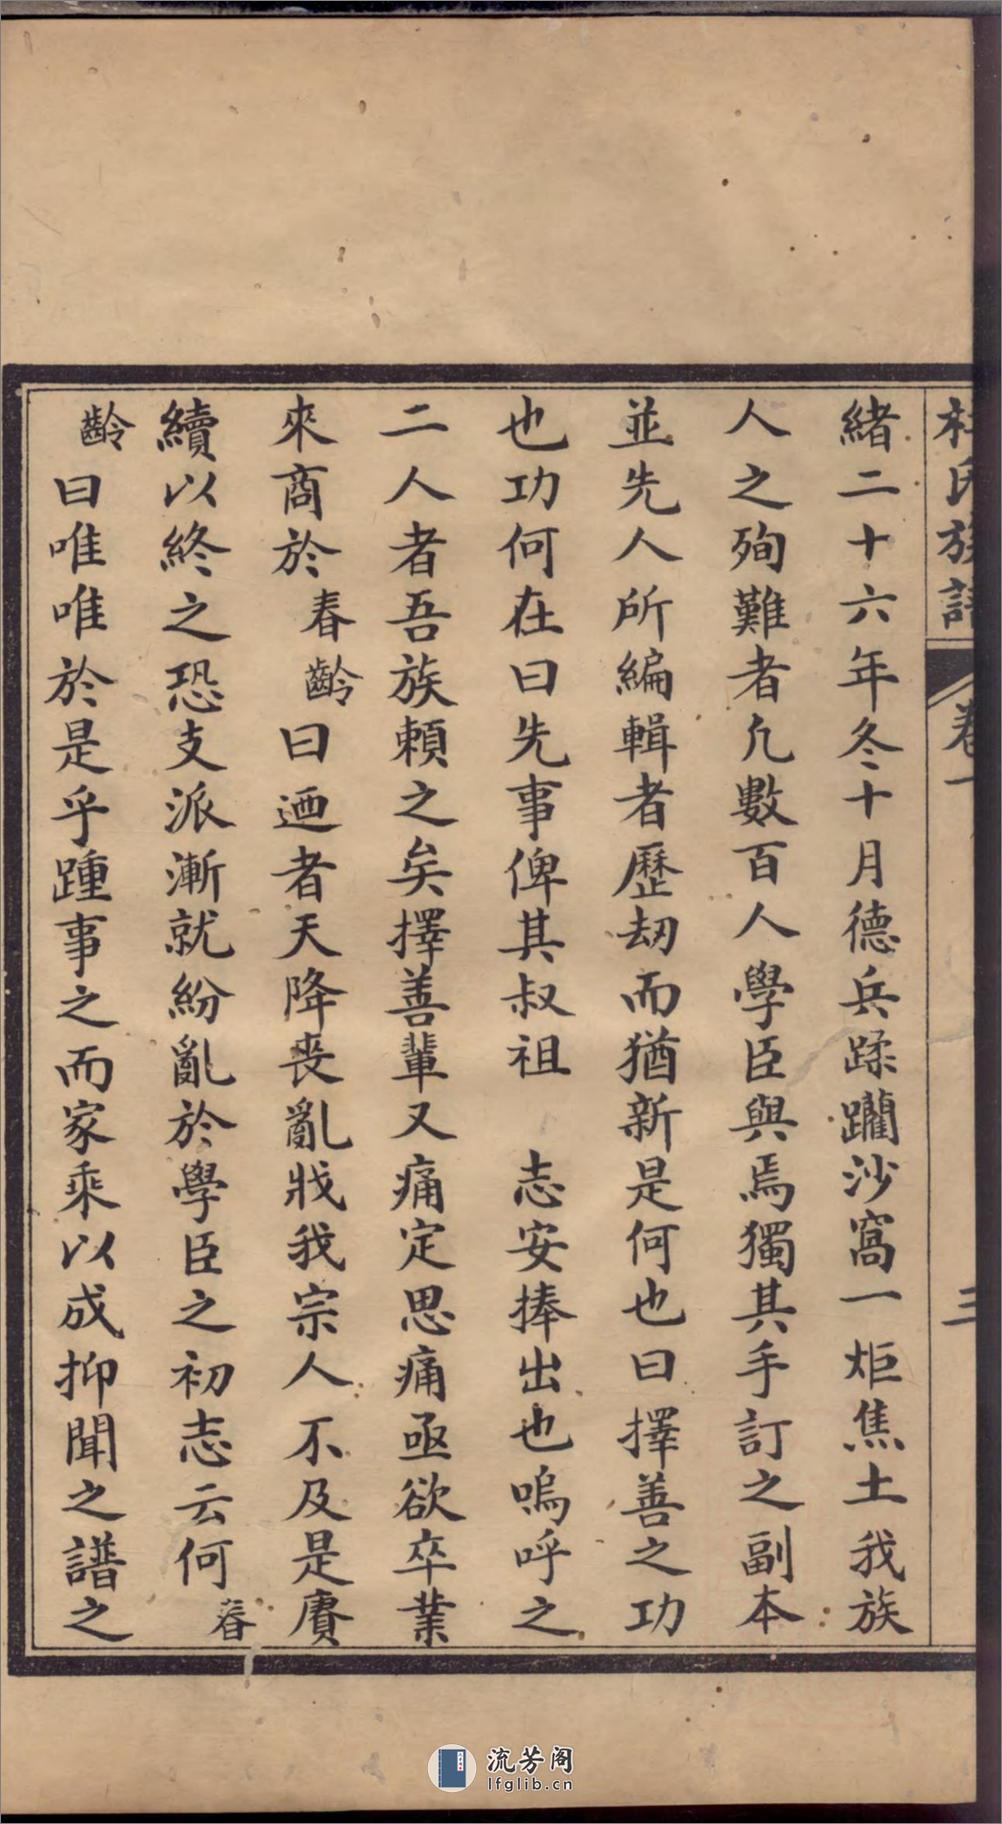 杜氏族譜 卷一 三
緒二十六年冬十月德兵蹂躪沙窩一炬焦土我族
人之殉難者凢數百人學臣與焉獨其手訂之副本
並先人所編輯者歷刼而猶新是何也曰擇善之功
也功何在曰先事俾其叔祖 志安捧出也嗚呼之
二人者吾族賴之矣擇善輩又痛定思痛亟欲卒業
來商於春齡曰迺者天降喪亂戕我宗人不及是賡
續以終之恐支派漸就紛亂於學臣之初志云何春
齡曰唯唯於是乎踵事之而家乘以成抑聞之譜之
流芳阁
lfglib.cn